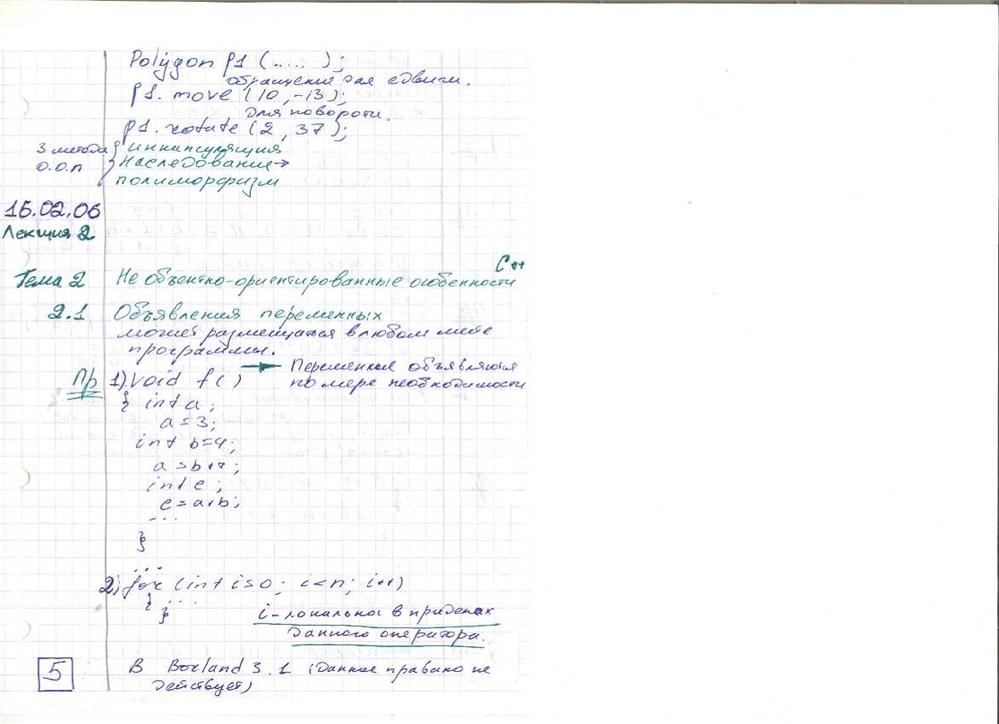 Polygon p1 (.....);
обращение для сдвига.
p1.move (10,-13);
для поворота.
p1.rotate (2, 37);
3 метода инкапсуляция
О.О.П наследование→
полиморфизм
16.02.06
Лекция 2
C++
Тема 2 Не объектно-ориентированные особенности
2.1 Объявления переменных
может размещаться в любом месте
программы.
Пр 1) void f() → Переменные объявляются
по мере необходимости
{ int a;
a=3;
int b=4;
a=b++;
int c;
c=a+b;
...
}
...
2) for (int i=0; i<n; i++)
{ ...
}
i-локальна в пределах
данного оператора.
5 В Borland 3.1 (Данное правило не
действует)